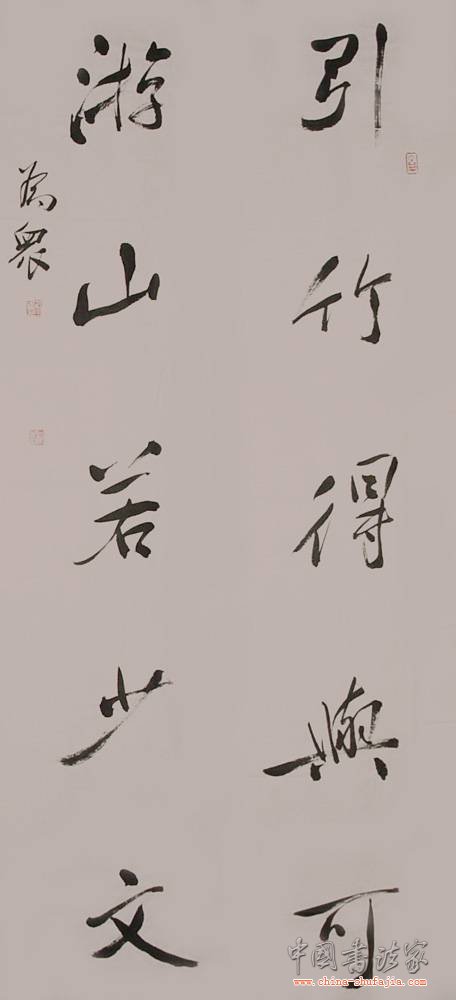 引竹得與可
游山若少文
為眾
中國書法家
www.china-shufajia.com